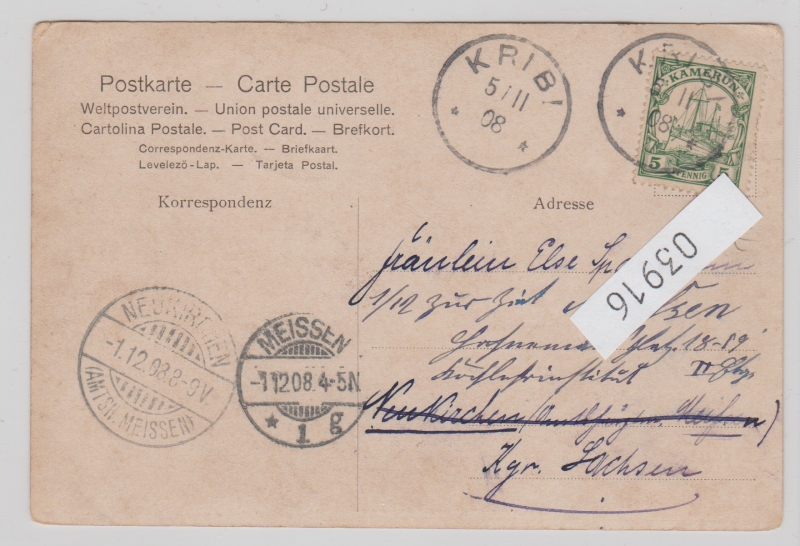 Postkarte — Carte Postale
Weltpostverein. — Union postale universelle.
Cartolina Postale. — Post Card. — Brefkort.
Correspondenz-Karte. — Briefkaart.
Levelező-Lap. — Tarjeta Postal.
Korrespondenz
Adresse
KRIBI
5/11
08
KRIBI
11
08
KAMERUN
5 PFENNIG 5
03916
Fräulein Else
1/12 zur Zeit
18-19
Neukirchen
Kgr. Sachsen
NEUKIRCHEN
-1.12.08.8-9V.
(AMTSH. MEISSEN)
MEISSEN
-1.12.08.4-5N
* 1 g